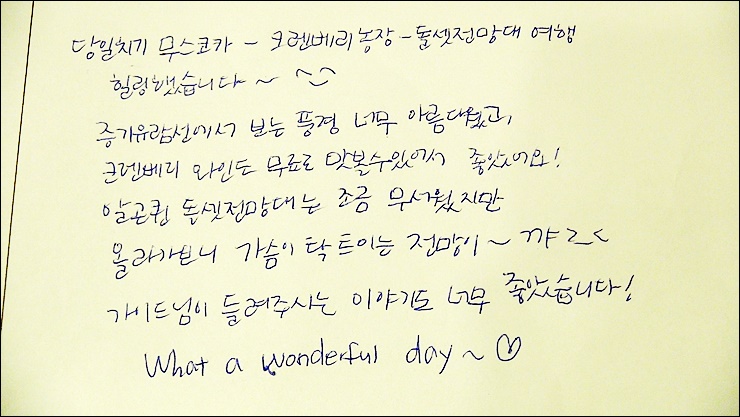 당일치기 무스코카 - 크렌베리농장 - 돌셋전망대 여행
힐링했습니다~ ^_^
증기유람선에서 보는 풍경 너무 아름다웠고,
크렌베리 와인도 무료로 맛볼수있어서 좋았어요!
알곤퀸 돌셋전망대는 조금 무서웠지만
올라가보니 가슴이 탁 트이는 전망이~ 꺄 ㄹ<
가이드님이 들려주시는 이야기도 너무 좋았습니다!
What a wonderful day~ ♡